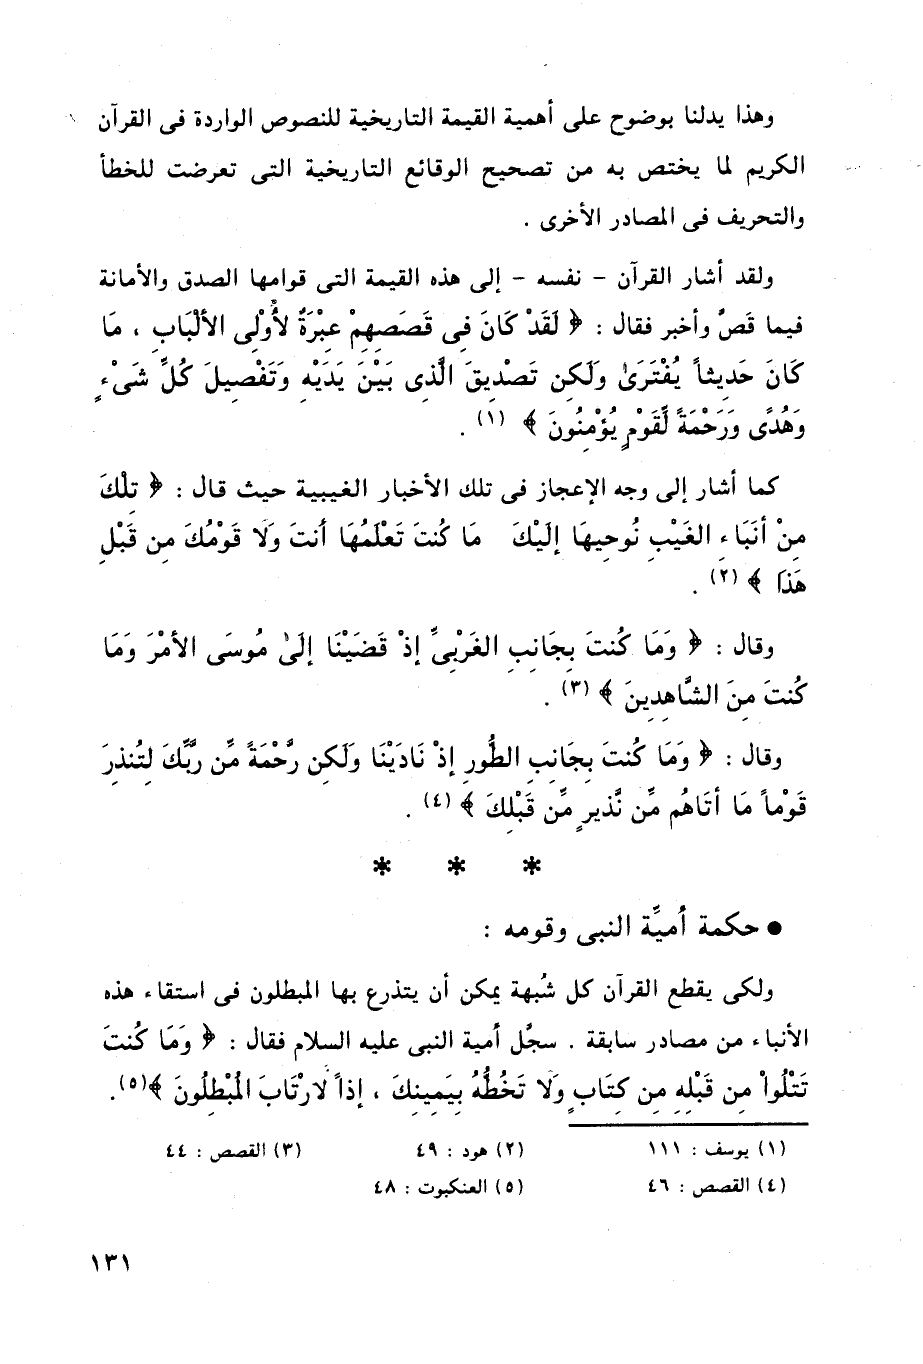 وهذا يدلنا بوضوح على أهمية القيمة التاريخية للنصوص الواردة فى القرآن
الكريم لما يختص به من تصحيح الوقائع التاريخية التى تعرضت للخطأ
والتحريف فى المصادر الأخرى .
ولقد أشار القرآن – نفسه – إلى هذه القيمة التى قوامها الصدق والأمانة
فيما قصَّ وأخبر فقال : ﴿ لَقَدْ كَانَ فِى قَصَصِهِمْ عِبْرَةٌ لأُوْلِى الأَلْبَابِ ، مَا
كَانَ حَدِيثاً يُفْتَرَىٰ وَلَكِن تَصْدِيقَ الَّذِى بَيْنَ يَدَيْهِ وَتَفْصِيلَ كُلِّ شَىْءٍ
وَهُدًى وَرَحْمَةً لِّقَوْمٍ يُؤْمِنُونَ ﴾ (١) .
كما أشار إلى وجه الإعجاز فى تلك الأخبار الغيبية حيث قال : ﴿ تِلْكَ
مِنْ أَنَبَاءِ الغَيْبِ نُوحِيهَا إِلَيْكَ مَا كُنتَ تَعْلَمُهَا أَنتَ وَلَا قَوْمُكَ مِن قَبْلِ
هَذَا ﴾ (٢) .
وقال : ﴿ وَمَا كُنتَ بِجَانِبِ الغَرْبِىِّ إِذْ قَضَيْنَا إِلَىٰ مُوسَى الأَمْرَ وَمَا
كُنتَ مِنَ الشَّاهِدِينَ ﴾ (٣) .
وقال : ﴿ وَمَا كُنتَ بِجَانِبِ الطُّورِ إِذْ نَادَيْنَا وَلَكِن رَّحْمَةً مِّن رَّبِّكَ لِتُنذِرَ
قَوْماً مَا أَتَاهُم مِّن نَّذِيرٍ مِّن قَبْلِكَ ﴾ (٤) .
* * *
● حكمة أميَّة النبى وقومه :
ولكى يقطع القرآن كل شُبهة يمكن أن يتذرع بها المبطلون فى استقاء هذه
الأنباء من مصادر سابقة . سجَّل أُمية النبى عليه السلام فقال : ﴿ وَمَا كُنتَ
تَتْلُواْ مِن قَبْلِهِ مِن كِتَابٍ وَلَا تَخُطُّهُ بِيَمِينِكَ ، إِذاً لارْتَابَ المُبْطِلُونَ ﴾(٥) .
(١) يوسف : ١١١ (٢) هود : ٤٩ (٣) القصص : ٤٤
(٤) القصص : ٤٦ (٥) العنكبوت : ٤٨
١٣١